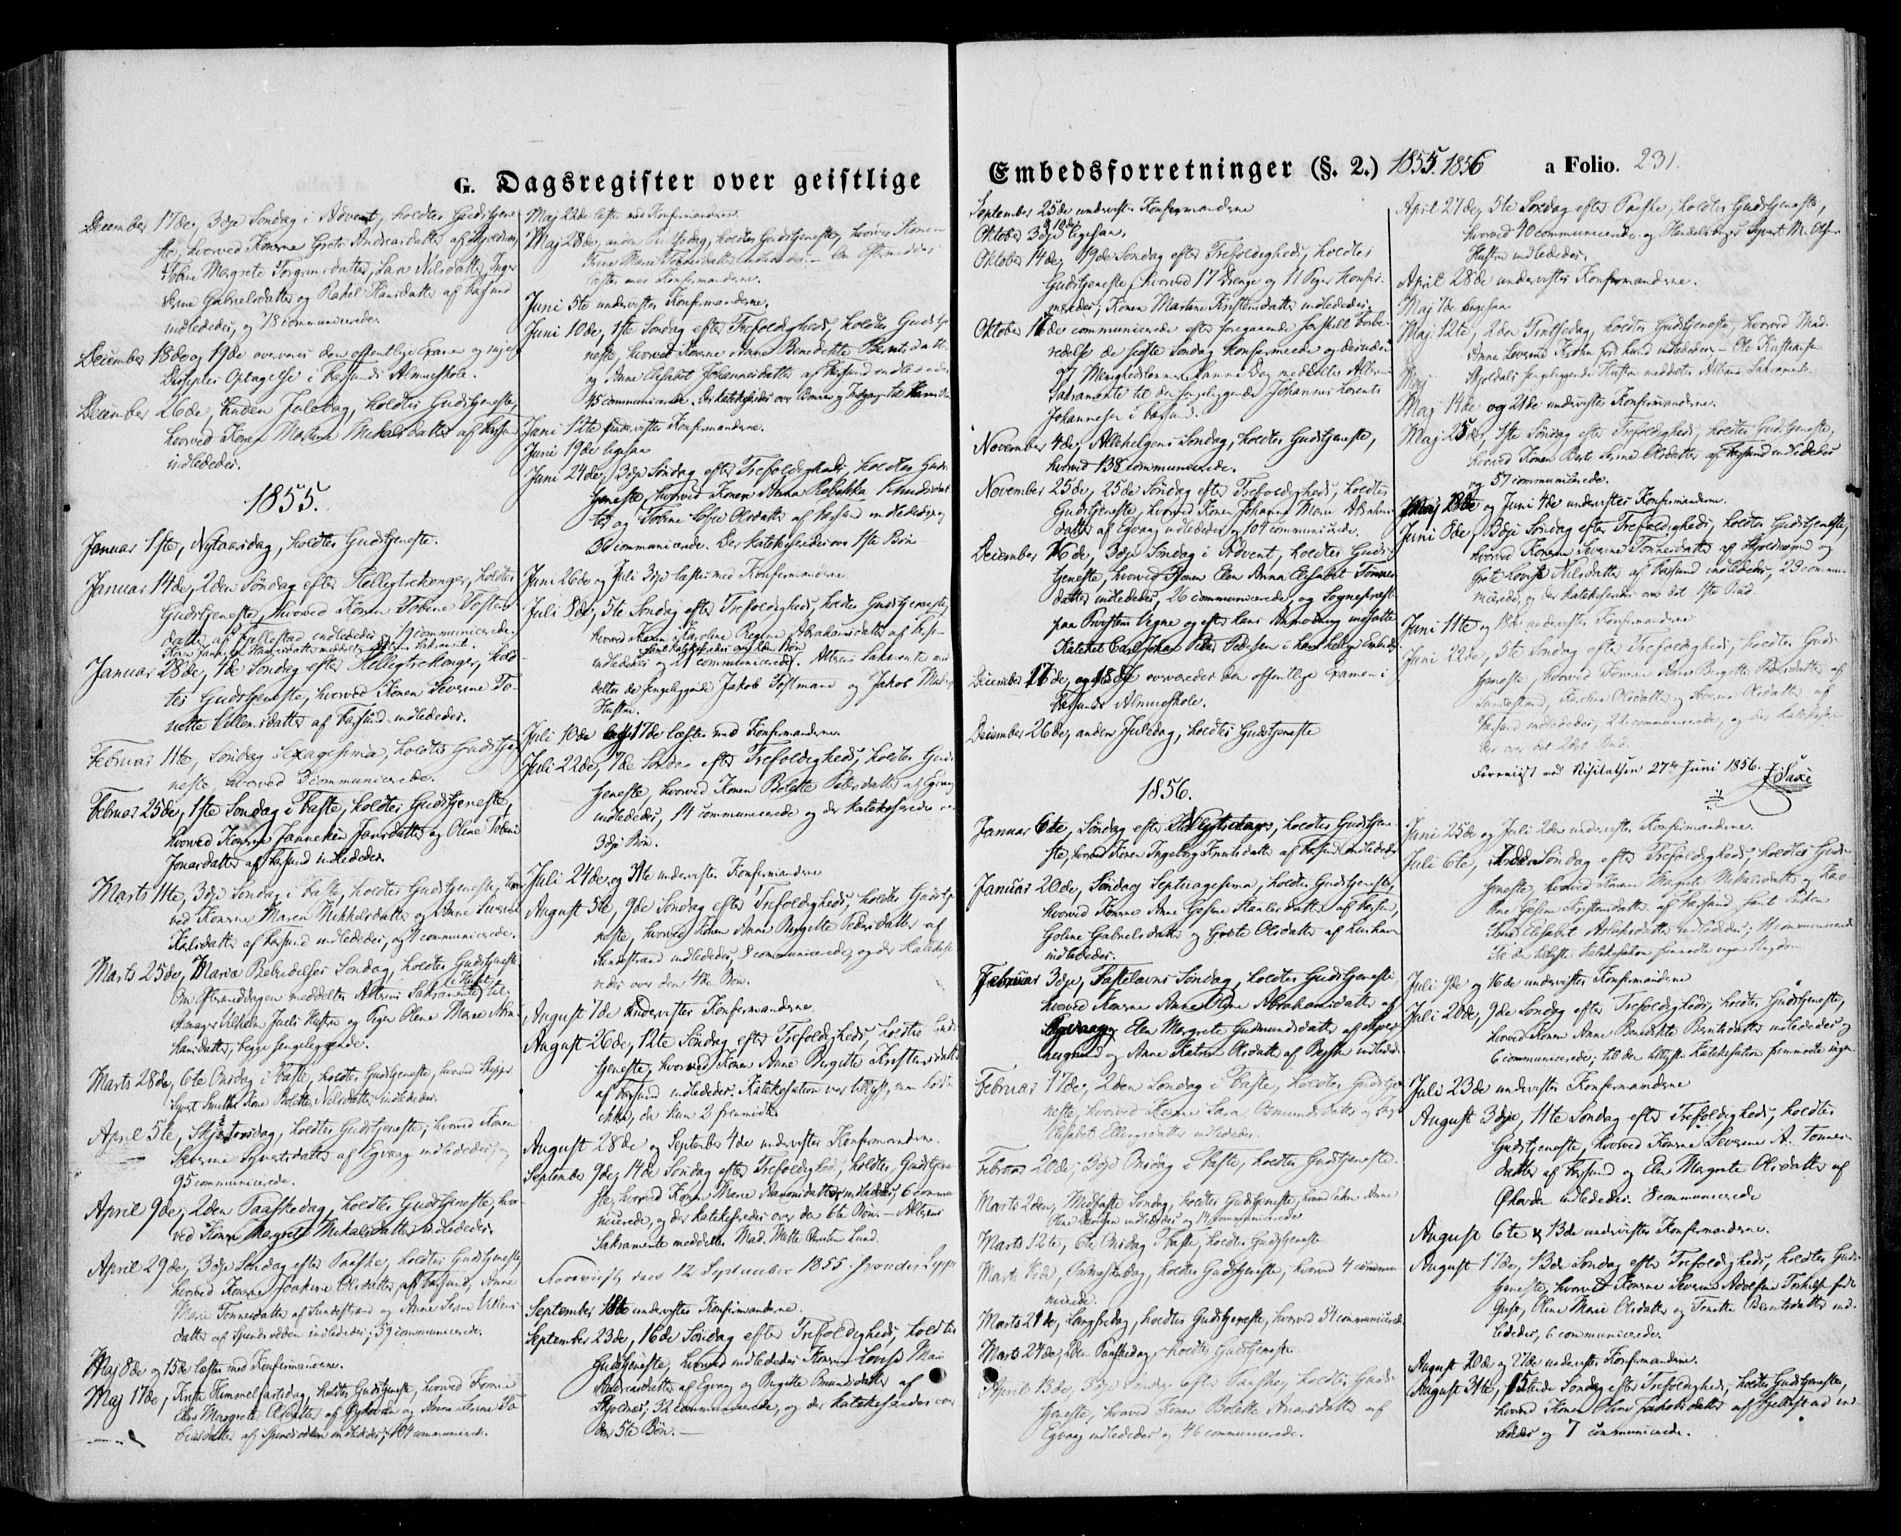 G. Dagsregister over geistlige
Embedsforretninger (§. 2.) 1855. 1856 a Folio. 231.
December 17de, 3die Søndag i Advent, holdtes Gudstjene-
ste, hvorved Konerne Grete Andreasdatter af
Tobine Margrete Torgrimsdatter, Sara Nilsdatter, Inger
Serine Gabrielsdatter og Rakel Hansdatter af Farsund
indlededes, og 78 communicerede.
December 18de og 19de overværet den offentlige Examen og nye
Disciples Optagelse i Farsunds Almueskole.
December 26de, Anden Juledag, holdtes Gudstjeneste,
hvorved Konen Martine Mikalsdatter af Farsund
indlededes.
1855.
Januar 1ste, Nytaarsdag, holdtes Gudstjeneste.
Januar 14de, 2den Søndag efter Helligtrekonger, holdtes
Gudstjeneste, hvorved Konen Tobine Tostens-
datter af Fjellestad indlededes og 9 communicerede.
Januar 28de, 4de Søndag efter Helligtrekonger, hold-
tes Gudstjeneste, hvorved Konen Severine To-
nette Villumsdatter af Farsund indlededes.
Februar 11te, Søndag Sexagesima, holdtes Gudstje-
neste hvorved 3 communicerede.
Februar 25de, 1ste Søndag i Faste, holdtes Gudstjeneste,
hvorved Konerne Janneken Jansdatter og Oline Tobine
Jonasdatter af Farsund indlededes.
Marts 11te, 3die Søndag i Faste, holdtes Gudstjeneste, hvor-
ved Konerne Maren Mikkelsdatter og Anne Severine
Karlsdatter af Farsund indlededes, og 1 communicerede.
Marts 25de, Mariæ Bebudelses Søndag, holdtes Gudstjeneste
Om Eftermiddagen meddeltes Alterens Sakramente til
Vilhelm Juels Hustru og Pigen Olene Marie
Hansdatter, begge sengeliggende.
Marts 28de, 6te Onsdag i Faste, holdtes Gudstjeneste, hvorved Skipper
Syvert Smiths Kone Bolette Nilsdatter indlededes.
April 5te, Skjertorsdag, holdtes Gudstjeneste, hvorved Konen
Severine Syvertsdatter af Egvaag indlededes, og
95 communicerede.
April 9de, 2den Paaskedag, holdtes Gudstjeneste, hvor-
ved Konen Margrete Mikalsdatter indlededes.
April 29de, 3die Søndag efter Paaske, holdtes Gudstjeneste,
hvorved Konerne Joakine Olsdatter af Farsund, Anne
Marie Tønnesdatter af Sundestrand og Anne Serine Villums-
datter af Spindsodden indlededes; 59 communicerede.
Maj 8de og 15de læstes med Konfirmanderne.
Maj 17de, Kristi Himmelfartsdag, holdtes Gudstjeneste, hvorved Konerne
Elen Margrete Olsdatter af og Anne Serine To-
biasdatter af Spindsodden indlededes; 104 communicerede.
Maj 22de læstes med Konfirmanderne.
Maj 28de, anden Pintsedag, holdtes Gudstjeneste, hvorved Konen
Marie indlededes. — Om Eftermiddagen
læstes med Konfirmanderne.
Juni 5te undervistes Konfirmanderne.
Juni 10de, 1ste Søndag efter Trefoldigheds, holdtes Gudstje-
neste, hvorved Konerne Anne Benedikte Berntsdatter
og Anne Elisabet Johannesdatter af Farsund indlededes
45 communicerede. Der katekiseredes over
Juni 12te undervistes Konfirmanderne.
Juni 19de ligesaa
Juni 24de, 3die Søndag efter Trefoldigheds, holdtes Guds-
tjeneste, hvorved Konen Anna Rebekka Knudsdat-
ter og Tobine Sofie Olsdatter af Farsund indlededes, og
30 communicerede. Der katekiseredes over 1ste Bøn
Juni 26de og Juli 3die læstes med Konfirmanderne
Juli 8de, 5te Søndag efter Trefoldigheds holdtes Gudstjeneste,
hvorved Konen Karoline Regine Abrahamsdatter af Far-
indlededes og 21 communicerede. Alterens Sakramente med-
deltes de sengeliggende Jakob Loftmand og Jakob
Hustru.
Juli 10de og 17de læstes med Konfirmanderne
Juli 22de, 7de Søndag efter Trefoldigheds, holdtes Guds-
tjeneste, hvorved Konen Bolette Pedersdatter af Egvaag
indlededes, 14 communicerede og der katekiseredes over
3die Bøn.
Juli 24de og 31te undervistes Konfirmanderne
August 5te, 9de Søndag efter Trefoldigheds, holdtes Gudstje-
neste, hvorved Konen Anne Birgitte Pedersdatter af
Sundestrand indlededes, 8 communicerede, og der katekise-
redes over den 4de Bøn.
August 7de undervistes Konfirmanderne.
August 26de, 12te Søndag efter Trefoldigheds, holdtes Guds-
tjeneste, hvorved Konen Anne Birgitte Kristensdatter
af Farsund indlededes. Katekisation var tillyst, men
ikke, da kun 2 fremmødte.
August 28de og September 4de undervistes Konfirmanderne.
September 9de, 14de Søndag efter Trefoldigheds, holdtes Gudstjene-
ste, hvorved Konen Marie indlededes, 6 commu-
nicerede, og der katekiseredes over den 6te Bøn. — Alterens
Sakramente meddeltes Mad. Mette Lund.
Foreviist den 12 September 1855.
September 18de undervistes Konfirmanderne.
September 23de, 16de Søndag efter Trefoldigheds, holdtes
Gudstjeneste, hvorved indlededes Konerne Lovise Marie
Andreasdatter af Egvaag og Birgitte Omundsdatter af
32 communicerede, og der katekiseredes over
den 5te Bøn. —
September 25de undervistes Konfirmanderne
Oktober 3die ligesaa.
Oktober 14de, 19de Søndag efter Trefoldigheds, holdtes
Gudstjeneste, hvorved 17 Drenge og 11 Piger konfir-
meredes; Konen Martine Kristensdatter indlededes.
Oktober 17de communicerede efter foregaaende særskilt Forbe-
redelse de sidste Søndag konfirmerede og desuden
97 Menighedslemmer. Samme Dag meddeltes Alterens
Sakramente til den sengeliggende Johannes Lorents
Johannesen i Farsund.
November 4de, Allehelgens Søndag, holdtes Gudstjeneste,
hvorved 138 communicerede.
November 25de, 25de Søndag efter Trefoldigheds, holdtes
Gudstjeneste, hvorved Konen Johanne Marie Abrahams-
datter af Egvaag indlededes og 104 communicerede.
December 16de, 3die Søndag i Advent, holdtes Guds-
tjeneste, hvorved Konen Elen Anna Elisabet Tønnes-
datter indlededes, 26 communicerede, og Sognepræsten
paa Provstens Vegne og efter hans Anmodning indsatte
Katekhet Carl Johan Peter Petersen i hans hellige Embede
December 17de, og 18de overværedes den offentlige Examen i
Farsunds Almueskole.
December 26de, anden Juledag, holdtes Gudstjeneste
1856.
Januar 6te, Søndag efter Nytaar, holdtes Gudstjene-
ste, hvorved Konen Ingeborg Knutsdatter af Farsund indlededes
Januar 20de, Søndag Septuagesima, holdtes Gudstjeneste,
hvorved Konerne Anne Gesine af Farsund,
Goline Gabrielsdatter og Grete Olsdatter af
indlededes.
Februar 3die, Fastelavns Søndag, holdtes Gudstjeneste
hvorved Konerne Anne Oline Abrahamsdatter af
Egvaag, Elen Margrete Gudmundsdatter af
og Anne Katrine Olsdatter af indlededes
Februar 17de, 2den Søndag i Faste, holdtes Gudstje-
neste, hvorved Konerne Sara Osmundsdatter og
Elisabet Ellingsdatter indlededes.
Februar 20de, 3die Onsdag i Faste, holdtes Gudstjeneste.
Marts 2den, Midfaste Søndag, holdtes Gudstjeneste, hvorved Anne
indlededes og 14 communicerede
Marts 12te, 6te Onsdag i Faste, holdtes Gudstjeneste
Marts 16de, Palmesøndag, holdtes Gudstjeneste, hvorved 4 commu-
nicerede.
Marts 21de, Langfredag, holdtes Gudstjeneste, hvorved 54 communicerede
Marts 24de, 2den Paaskedag, holdtes Gudstjeneste.
April 13de, 3die Søndag efter Paaske, holdtes Guds-
tjeneste, hvorved Konen Bolette Aanensdatter af
Egvaag indlededes og 46 communicerede.
April 27de, 5te Søndag efter Paaske, holdtes Gudstjeneste,
hvorved 40 communicerede og Handelsborger Syvert M. Olsens
Hustru indlededes.
April 28de undervistes Konfirmanderne.
Maj 7de ligesaa
Maj 12te, 2den Pintsedag, holdtes Gudstjeneste, hvorved Mad.
Anne Severine Krohn født Lund indlededes. — Ole Kristensen
sengeliggende Hustru meddeltes Alterens Sakramente.
Maj 14de og 21de undervistes Konfirmanderne.
Maj 25de, 1ste Søndag efter Trefoldigheds, holdtes Gudstjeneste,
hvorved Konen Berte Serine Olsdatter af Farsund indlededes
og 57 communicerede.
Maj 28de og Juni 4de undervistes Konfirmanderne.
Juni 8de, 3die Søndag efter Trefoldigheds, holdtes Gudstjeneste,
hvorved Konerne Severine Tønnesdatter af og
Grete Lovise Nilsdatter af Farsund indlededes, 23 commu-
nicerede, og der katekiseredes over det 1ste Bud.
Juni 11te og 18de undervistes Konfirmanderne
Juni 22de, 5te Søndag efter Trefoldigheds, holdtes Guds-
tjeneste, hvorved Konerne Anne Birgitte Pedersdatter af
Sundestrand, Karoline Olsdatter og Serine Olsdatter af
Farsund indlededes, 22 communicerede, og der katekisere-
des over det 2det Bud.
Foreviist ved Visitatsen 27de Juni 1856.
Juni 25de og Juli 2den undervistes Konfirmanderne.
Juli 6te, Søndag efter Trefoldigheds, holdtes Guds-
tjeneste, hvorved Konerne Margrete Mikalsdatter og
Gesine Kristensdatter af Farsund samt Enken
Elisabet indlededes; 11 communicerede
Til den tillyste Katekisation fremmødte ingen Ungdom
Juli 9de og 16de undervistes Konfirmanderne
Juli 20de, 9de Søndag efter Trefoldigheds, holdtes Gudstjeneste,
hvorved Konen Anne Benedikte Berntsdatter indlededes og
6 communicerede; til den tillyste Katekisation fremmødte ingen
Juli 23de undervistes Konfirmanderne
August 3die, 11te Søndag efter Trefoldigheds, holdtes
Gudstjeneste, hvorved Konerne Severine A. Tønnes-
datter af Farsund og Elen Margrete Olsdatter af
indlededes. 8 communicerede
August 6te & 13de undervistes Konfirmanderne.
August 17de, 13de Søndag efter Trefoldigheds, holdtes Guds-
tjeneste, hvorved Konerne Severine Adolfine Torkildsen født
Oline Marie Olsdatter og Tonette Berntsdatter ind-
lededes, 6 communicerede.
August 20de og 27de undervistes Konfirmanderne.
August 31te, 15tende Søndag efter Trefoldigheds, holdtes Gudstjeneste,
hvorved Konen Oline Jakobsdatter af Fjellestad ind-
lededes og 7 communicerede.